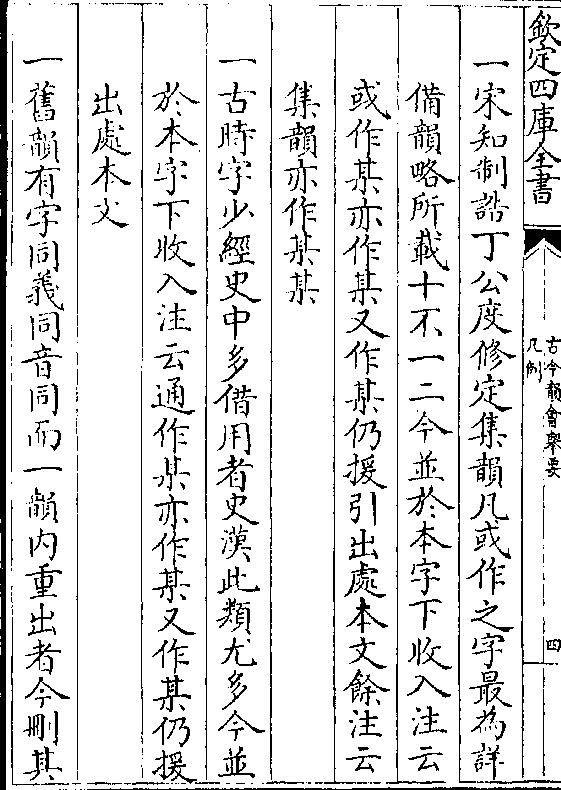 欽定四庫全書
古今韻會舉要
凡例
四
一宋知制誥丁公度修定集韻凡或作之字最為詳
備韻略所載十不一二今並於本字下收入注云
或作某亦作某又作某仍援引出處本文餘注云
集韻亦作某某
一古時字少經史中多借用者史漢此類尤多今並
於本字下收入注云通作某亦作某又作某仍援
出處本文
一舊韻有字同義同音同而一韻內重出者今刪其